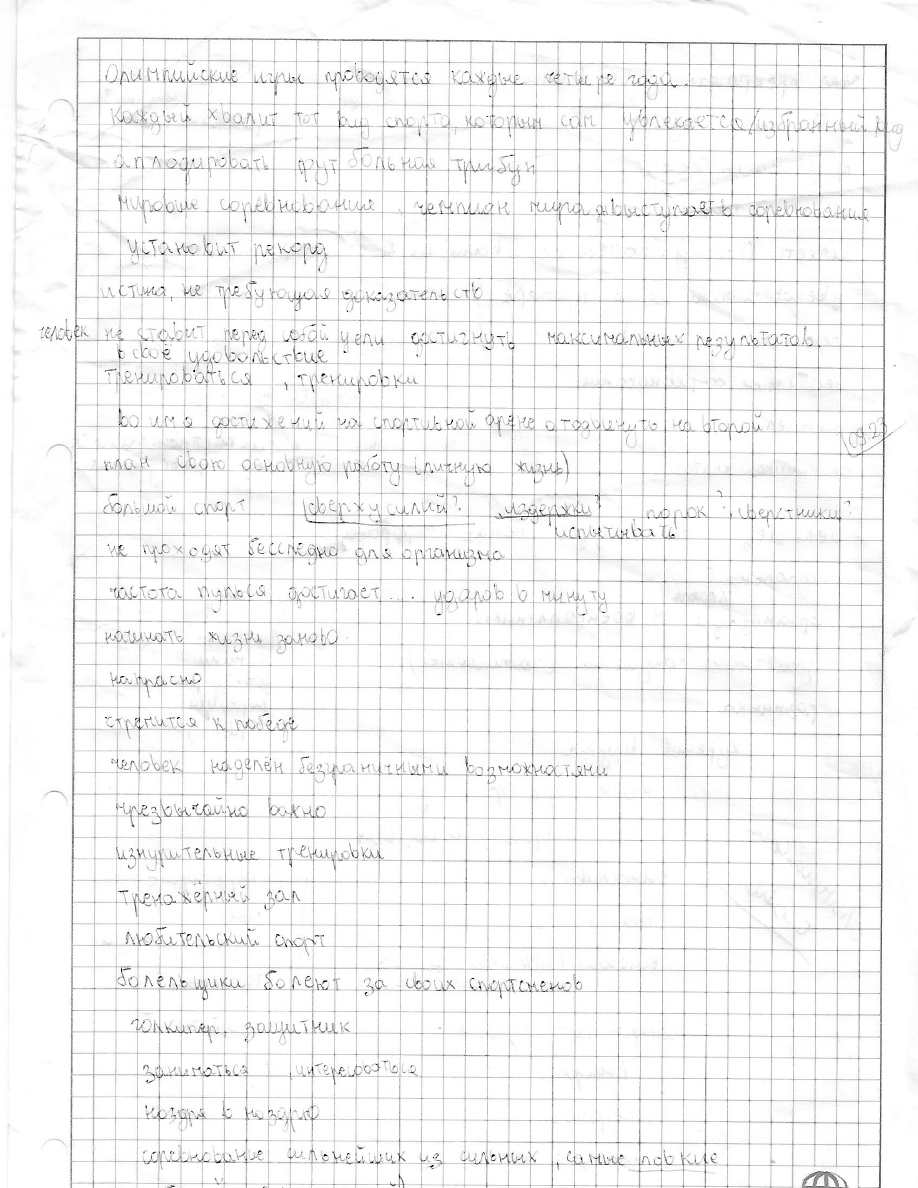 Олимпийские игры проводятся каждые четыре года.
каждый хвалит тот вид спорта, которым сам увлекается/избранный вид
аплодировать футбольная трибун
мировые соревнования, чемпиан мира выступать соревнования
установит рекорд
истина, не требующая доказательств
человек не ставит перед собой цели достигнуть максимальных результатов.
в своё удовольствие
тренироваться, тренировки
во имя достижений на спортивной арене отодвинуть на второй
09.23
план свою основную работу (личную жизнь)
большой спорт сверхусилий? издержки? порок? сверстники?
испытывать
не проходят бесследно для организма
частота пульса достигает... ударов в минуту
начинать жизнь заново.
напрасно
стремится к победе
человек наделён безграничными возможностями
чрезвычайно важно
изнурительные тренировки
тренажёрный зал
любительский спорт
болельщики болеют за своих спортсменов
голкипер, защитник
заниматься, интересоваться
ноздря в ноздрю
соревнование сильнейших из сильных, самые ловкие